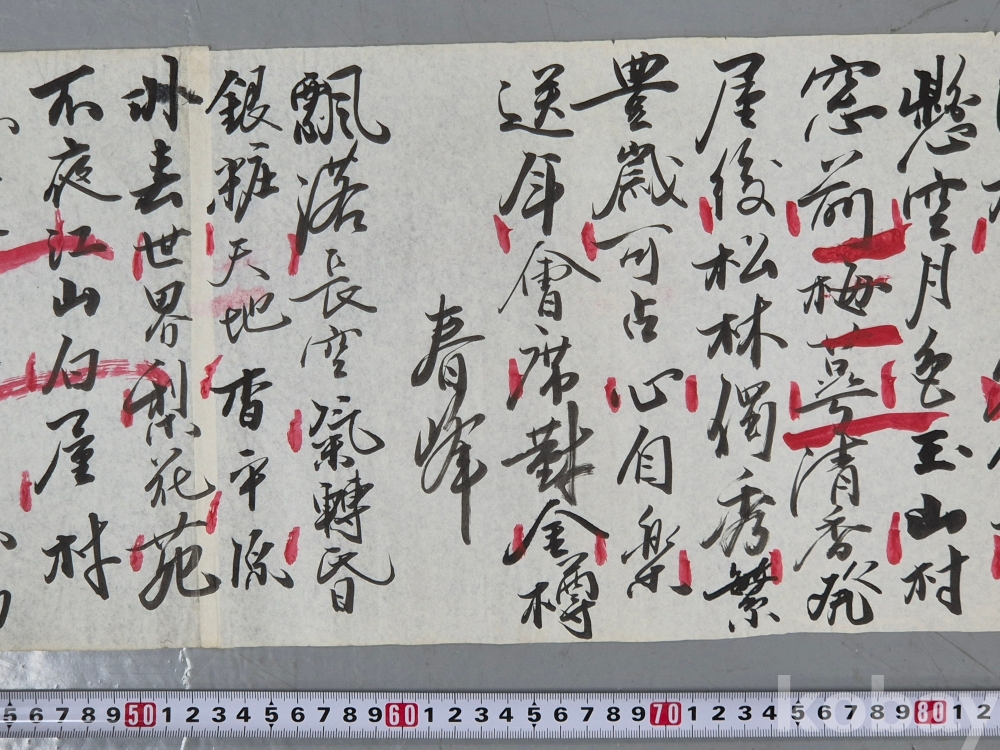 懸空月色玉山村
窓前梅萼清香発
屋後松林獨秀繁
豊歳可占心自楽
送年會席對金樽
春峰
飄落長空氣轉昏
銀粧天地杳平原
世界梨花苑
不夜江山白屋村
5 6 7 8 9 50 1 2 3 4 5 6 7 8 9 60 1 2 3 4 5 6 7 8 9 70 1 2 3 4 5 6 7 8 9 80 1 2
kobay